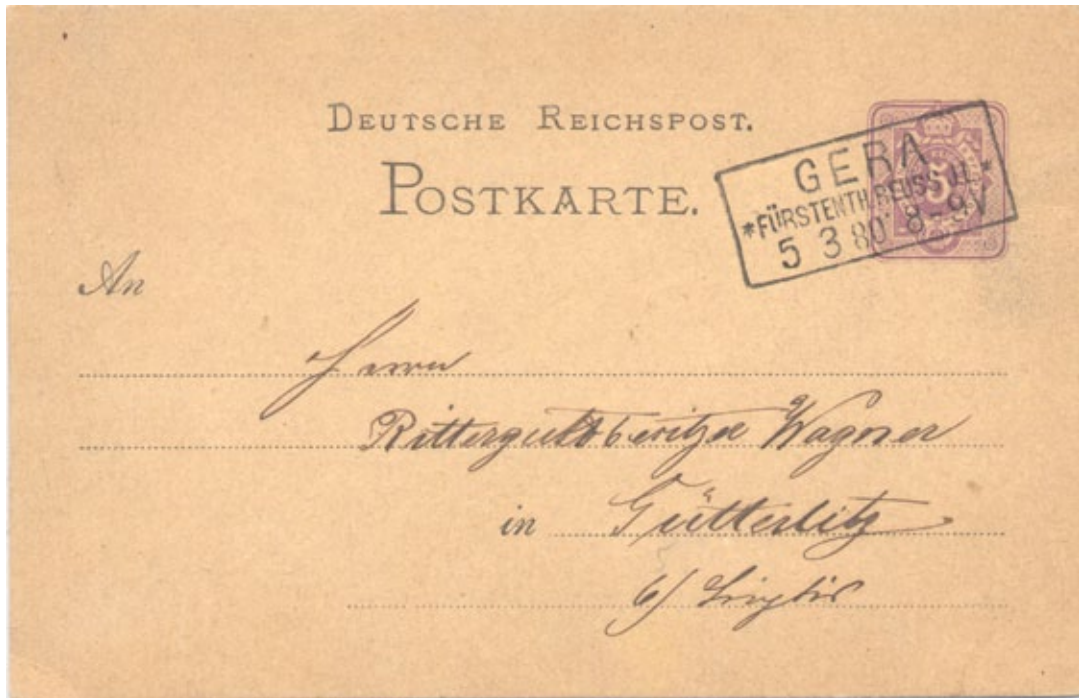 DEUTSCHE REICHSPOST.
POSTKARTE.
GERA
*FÜRSTENTH.REUSS J.L.*
5 3 80 8-9V
5
An
Herrn
Rittergutsbesitzer Wagner
in Gütterlitz
b/